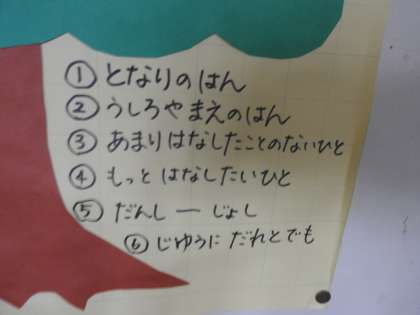 ① となりのはん
② うしろやまえのはん
③ あまりはなしたことのないひと
④ もっと はなしたいひと
⑤ だんし ー じょし
⑥ じゆうに だれとでも